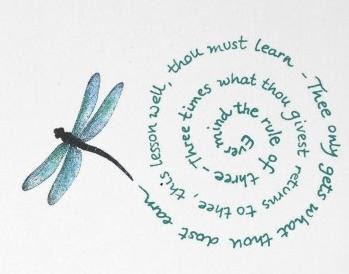 Ever mind the rule of three - Three times what thou givest returns to thee, this lesson well, thou must learn - Thee only gets what thou dost earn